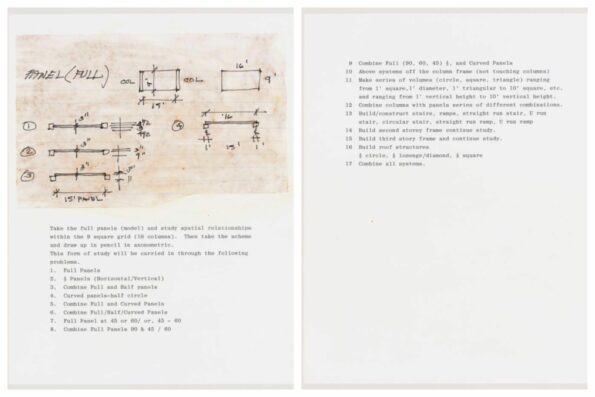 PANEL (FULL)
COL
COL
15'
16'
9'
1
2
3
4
'16
1'
1'
15' PANEL
Take the full panels (model) and study spatial relationships
within the 9 square grid (16 columns). Then take the scheme
and draw up in pencil in axonometric.
This form of study will be carried in through the following
problems.
1. Full Panels
2. ½ Panels (Horizontal/Vertical)
3. Combine Full and Half panels
4. Curved panels=half circle
5. Combine Full and Curved Panels
6. Combine Full/Half/Curved Panels
7. Full Panel at 45 or 60/ or, 45 - 60
8. Combine Full Panels 90 & 45 / 60
9 Combine Full (90, 60, 45) ½, and Curved Panels
10 Above systems off the column frame (not touching columns)
11 Make series of volumes (circle, square, triangle) ranging
from 1' square,1' diameter, 1' triangular to 10' square, etc.
and ranging from 1' vertical height to 10' vertical height.
12 Combine columns with panels series of different combinations.
13 Build/construct stairs, ramps, straight run stair, U run
stair, circular stair, straight run ramp, U run ramp
14 Build second storey frame continue study.
15 Build third story frame and continue study.
16 Build roof structures
½ circle, ½ lozenge/diamond, ½ square
17 Combine all systems.